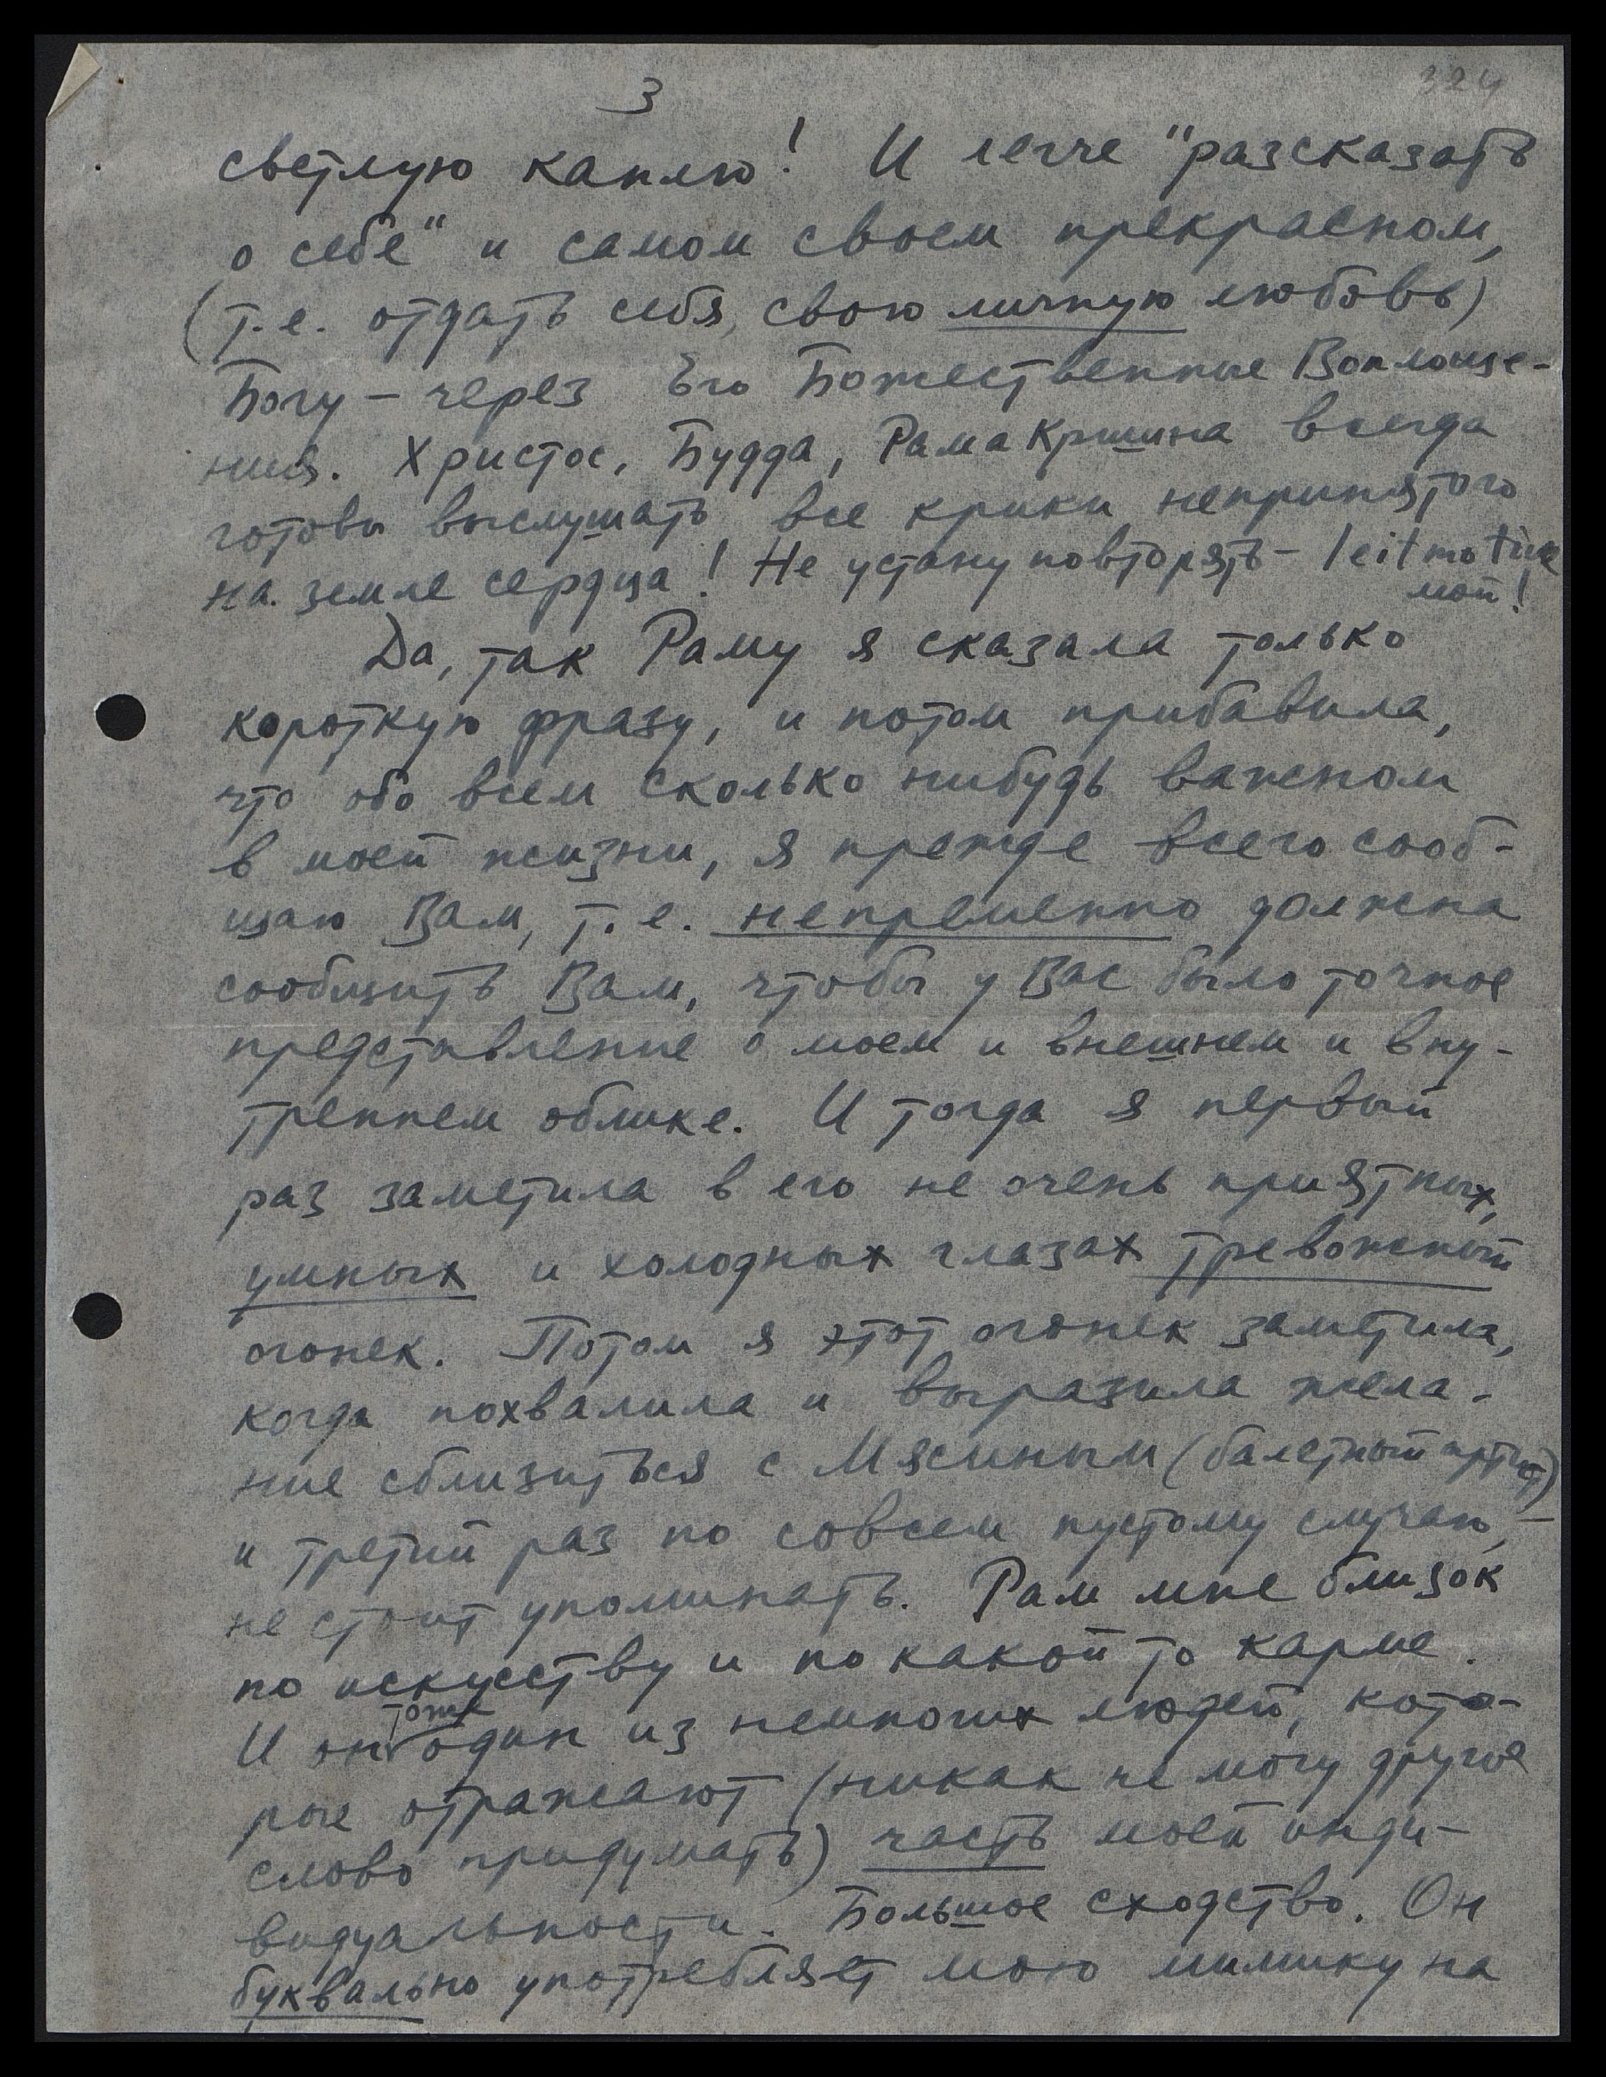 3
324
светлую каплю! И легче "разсказать
о себе" и самом своем прекрасном,
(т.е. отдать себя, свою личную любовь)
Богу – через Его Божественные Воплоще-
ния. Христос, Будда, Рама Кришна всегда
готовы выслушать все крики непринятого
на земле сердца! Не устану повторять – leitmotive
мой!
Да, так Раму я сказала только
короткую фразу, и потом прибавила,
что обо всем сколько нибудь важном
в моей жизни, я прежде всего сооб-
щаю Вам, т.е. непременно должна
сообщить Вам, чтобы у Вас было точное
представление о моем и внешнем и вну-
треннем облике. И тогда я первый
раз заметила в его не очень приятных,
умных и холодных глазах тревожный
огонек. Потом я этот огонек заметила,
когда похвалила и выразила жела-
ние сблизиться с Мясиным (балетный артист)
и третий раз по совсем пустому случаю, –
не стоит упоминать. Рам мне близок
по искусству и по какой то карме.
И он тоже один из немногих людей, кото-
рые отражают (никак не могу другое
слово придумать) часть моей инди-
видуальности. Большое сходство. Он
буквально употребляет мою мимику на